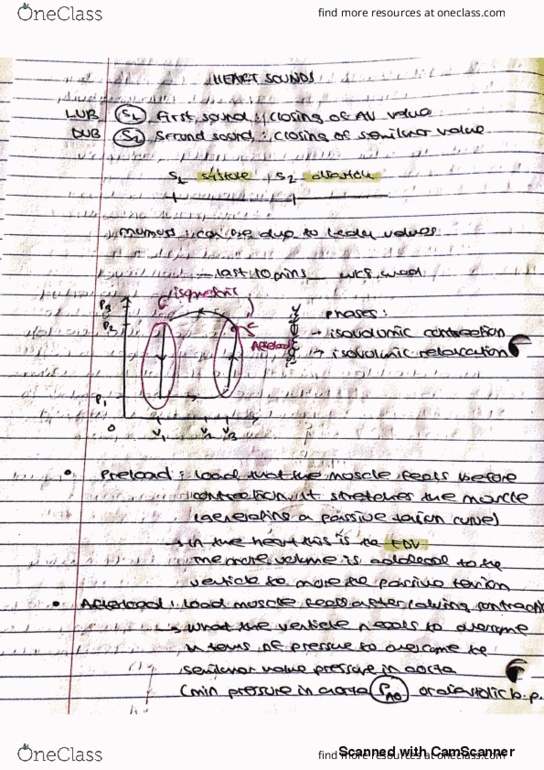 OneClass
find more resources at oneclass.com
HEART SOUNDS
LUB S1 First sound : closing of AV valve
DUB S2 Second sound : closing of semilunar valve
S1 systole S2 diastole
murmurs : can be due to leaky valves
last 10 mins
isometric
P3
P2
P1
0
V1 V2 V3
Afterload
phases :
→ isovolumic contraction
→ isovolumic relaxation
• Preload : load that the muscle feels before
contraction. It stretches the muscle
(generating a passive tension curve)
→ in the heart this is the EDV
the more volume is added to the
ventricle to more the passive tension
• Afterload : Load muscle feels after/during contraction
→ what the ventricle needs to overcome
in terms of pressure to overcome the
semilunar valve pressure in aorta
(min pressure in aorta PAO or diastolic b.p.
OneClass
find more resources at oneclass.com
Scanned with CamScanner